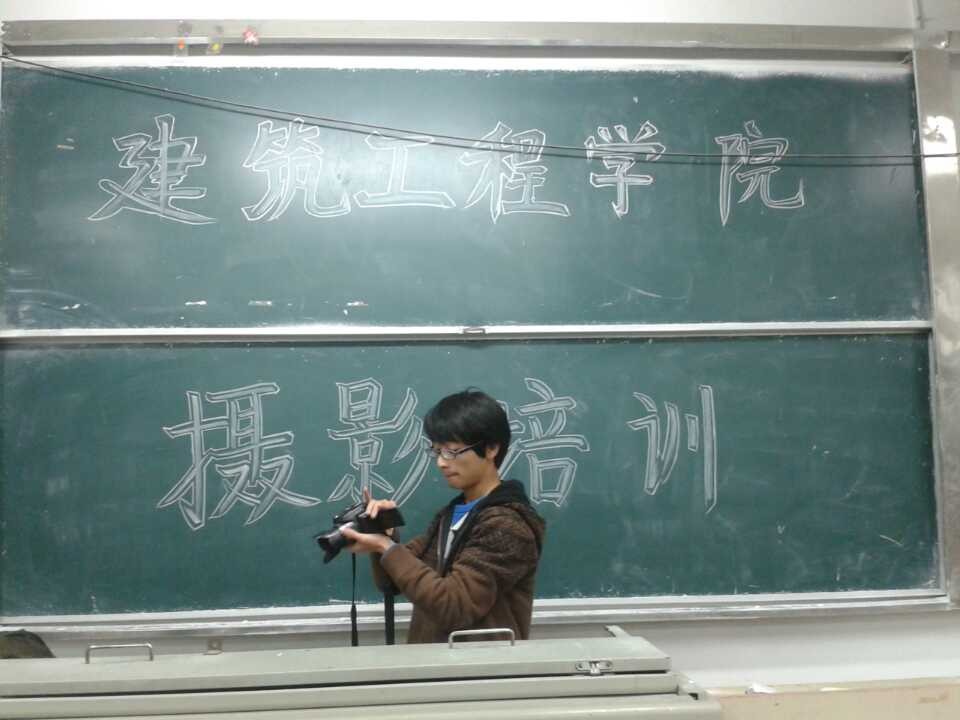 建筑工程学院
摄影培训